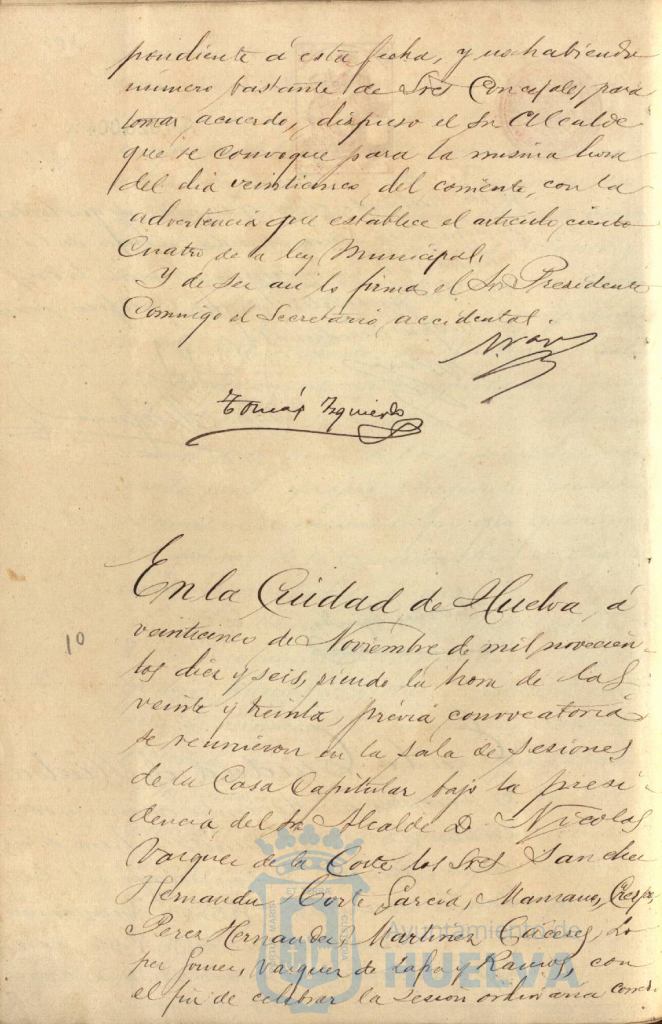 pondiente á esta fecha, y no habiendo
número bastante de Sres Concejales para
tomar acuerdo, dispuso el Sr Alcalde
que se convoque para la misma hora
del dia veinticinco del corriente, con la
advertencia que establece el artículo ciento
Cuatro de la ley Municipal.
Y de ser asi lo firma el Sr Presidente
Conmigo el Secretario accidental.
Tomás Izquierdo
En la Ciudad de Huelva, á
10
veinticinco de Noviembre de mil novecien-
tos diez y seis, siendo la hora de las
veinte y treinta, prévia convocatoria
se reunieron en la Sala de Sesiones
de la Casa Capitular bajo la presi-
dencia del Sr Alcalde D Nicolas
Vazquez de la Corte los Sres Sanchez
Hernandez Corte Garcia, Manzano, Crespo,
Perez Hernandez, Martinez Cáceres, Lo
pez Gomez, Vazquez de Zafra y Ramos, con
el fin de celebrar la sesion ordinaria corres-
Ayuntamiento de
HUELVA